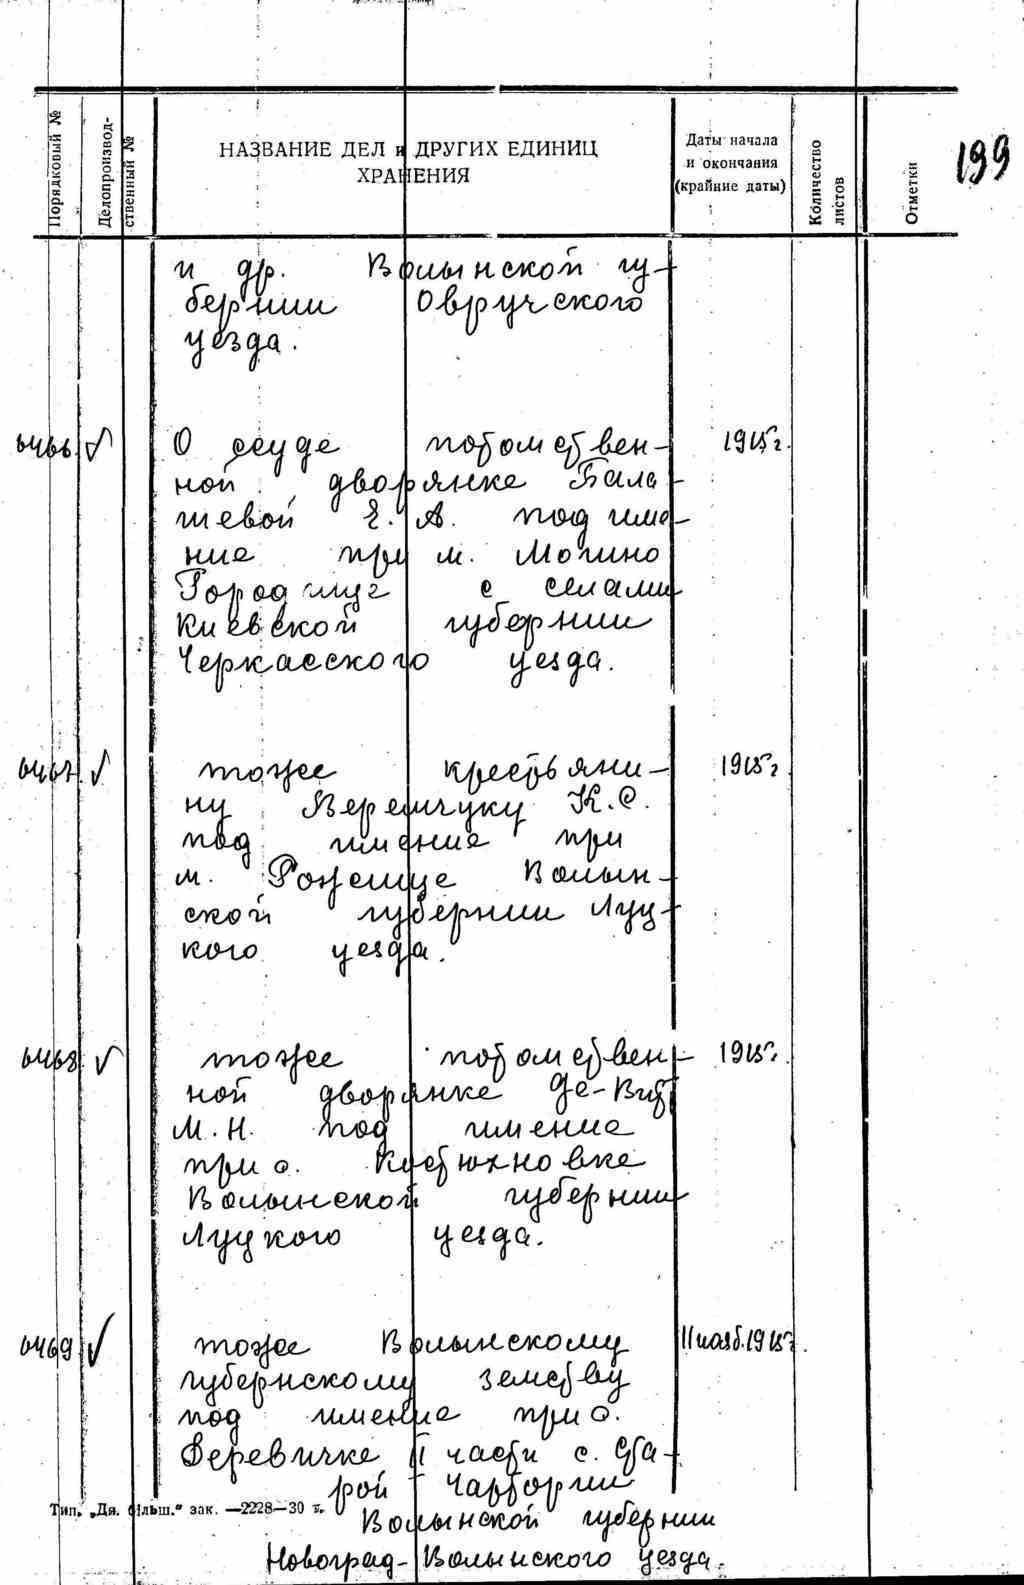 199
Порядковый №
Делопроизвод-
ственный №
НАЗВАНИЕ ДЕЛ и ДРУГИХ ЕДИНИЦ
ХРАНЕНИЯ
Даты начала
и окончания
(крайние даты)
Количество
листов
Отметки
и др. Волынской гу-
бернии Овручского
уезда.
6466 √ О ссуде потомствен- 1915 г.
ной дворянке Бала
шевой Е. А. под име-
ние при м. Мошно
Городище с селами
Киевской губернии
Черкасского уезда.
6467 √ тоже крестьяни- 1915 г.
ну Верещуку К. С.
под имение при
м. Рожище Волын-
ской губернии Луц-
кого уезда.
6468 √ тоже потомствен- 1915 г.
ной дворянке Де-Витт
М. Н. под имение
при с. Костюхновке
Волынской губернии
Луцкого уезда.
6469 √ тоже Волынскому 11 нояб. 1915 г.
губернскому земству
под имение при с.
Деревичке II части с. Ста-
рой Чартории
Тип. „Дя. більш." зак. —2228—30 т.
Волынской губернии
Новоград-Волынского уезда.